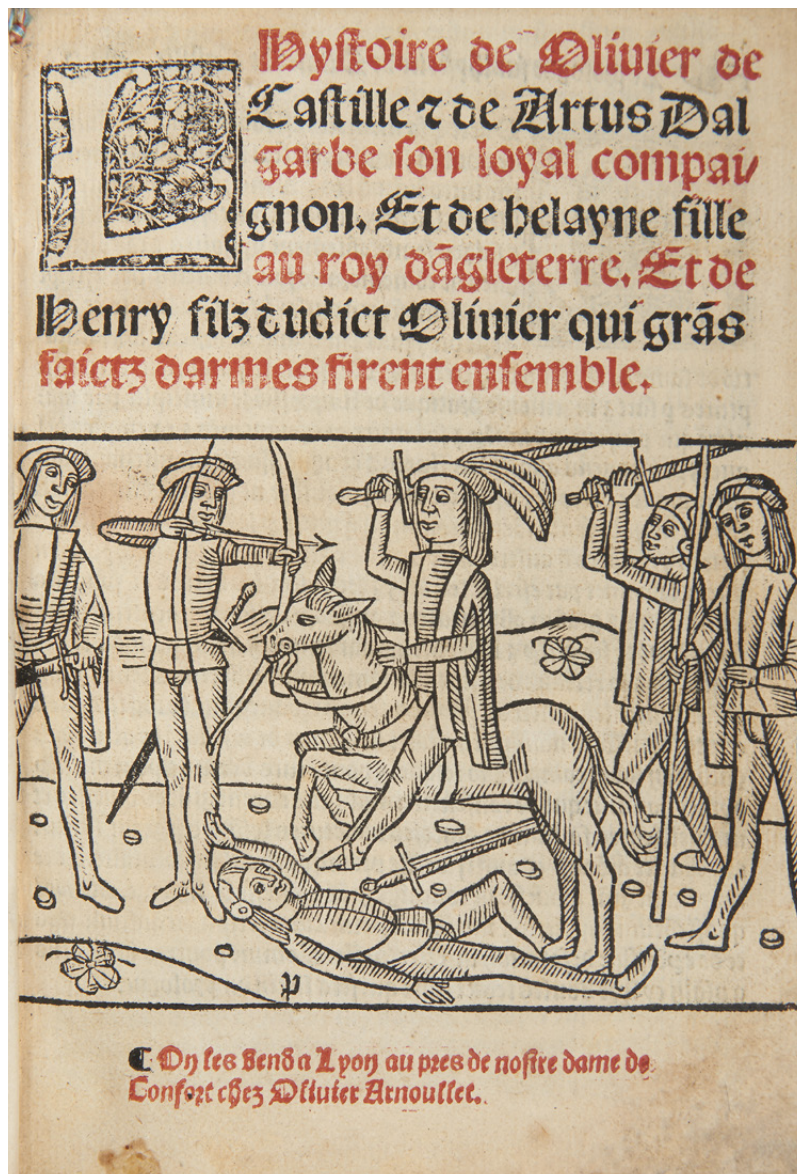 LHystoire de Olivier de
Castille ⁊ de Artus Dal
garbe son loyal compai/
gnon. Et de helayne fille
au roy dãgleterre. Et de
Henry filz dudict Olivier qui grãs
faictz darmes firent ensemble.
P
¶ On les vend a Lyon au pres de nostre dame de
Confort chez Olivier Arnoullet.